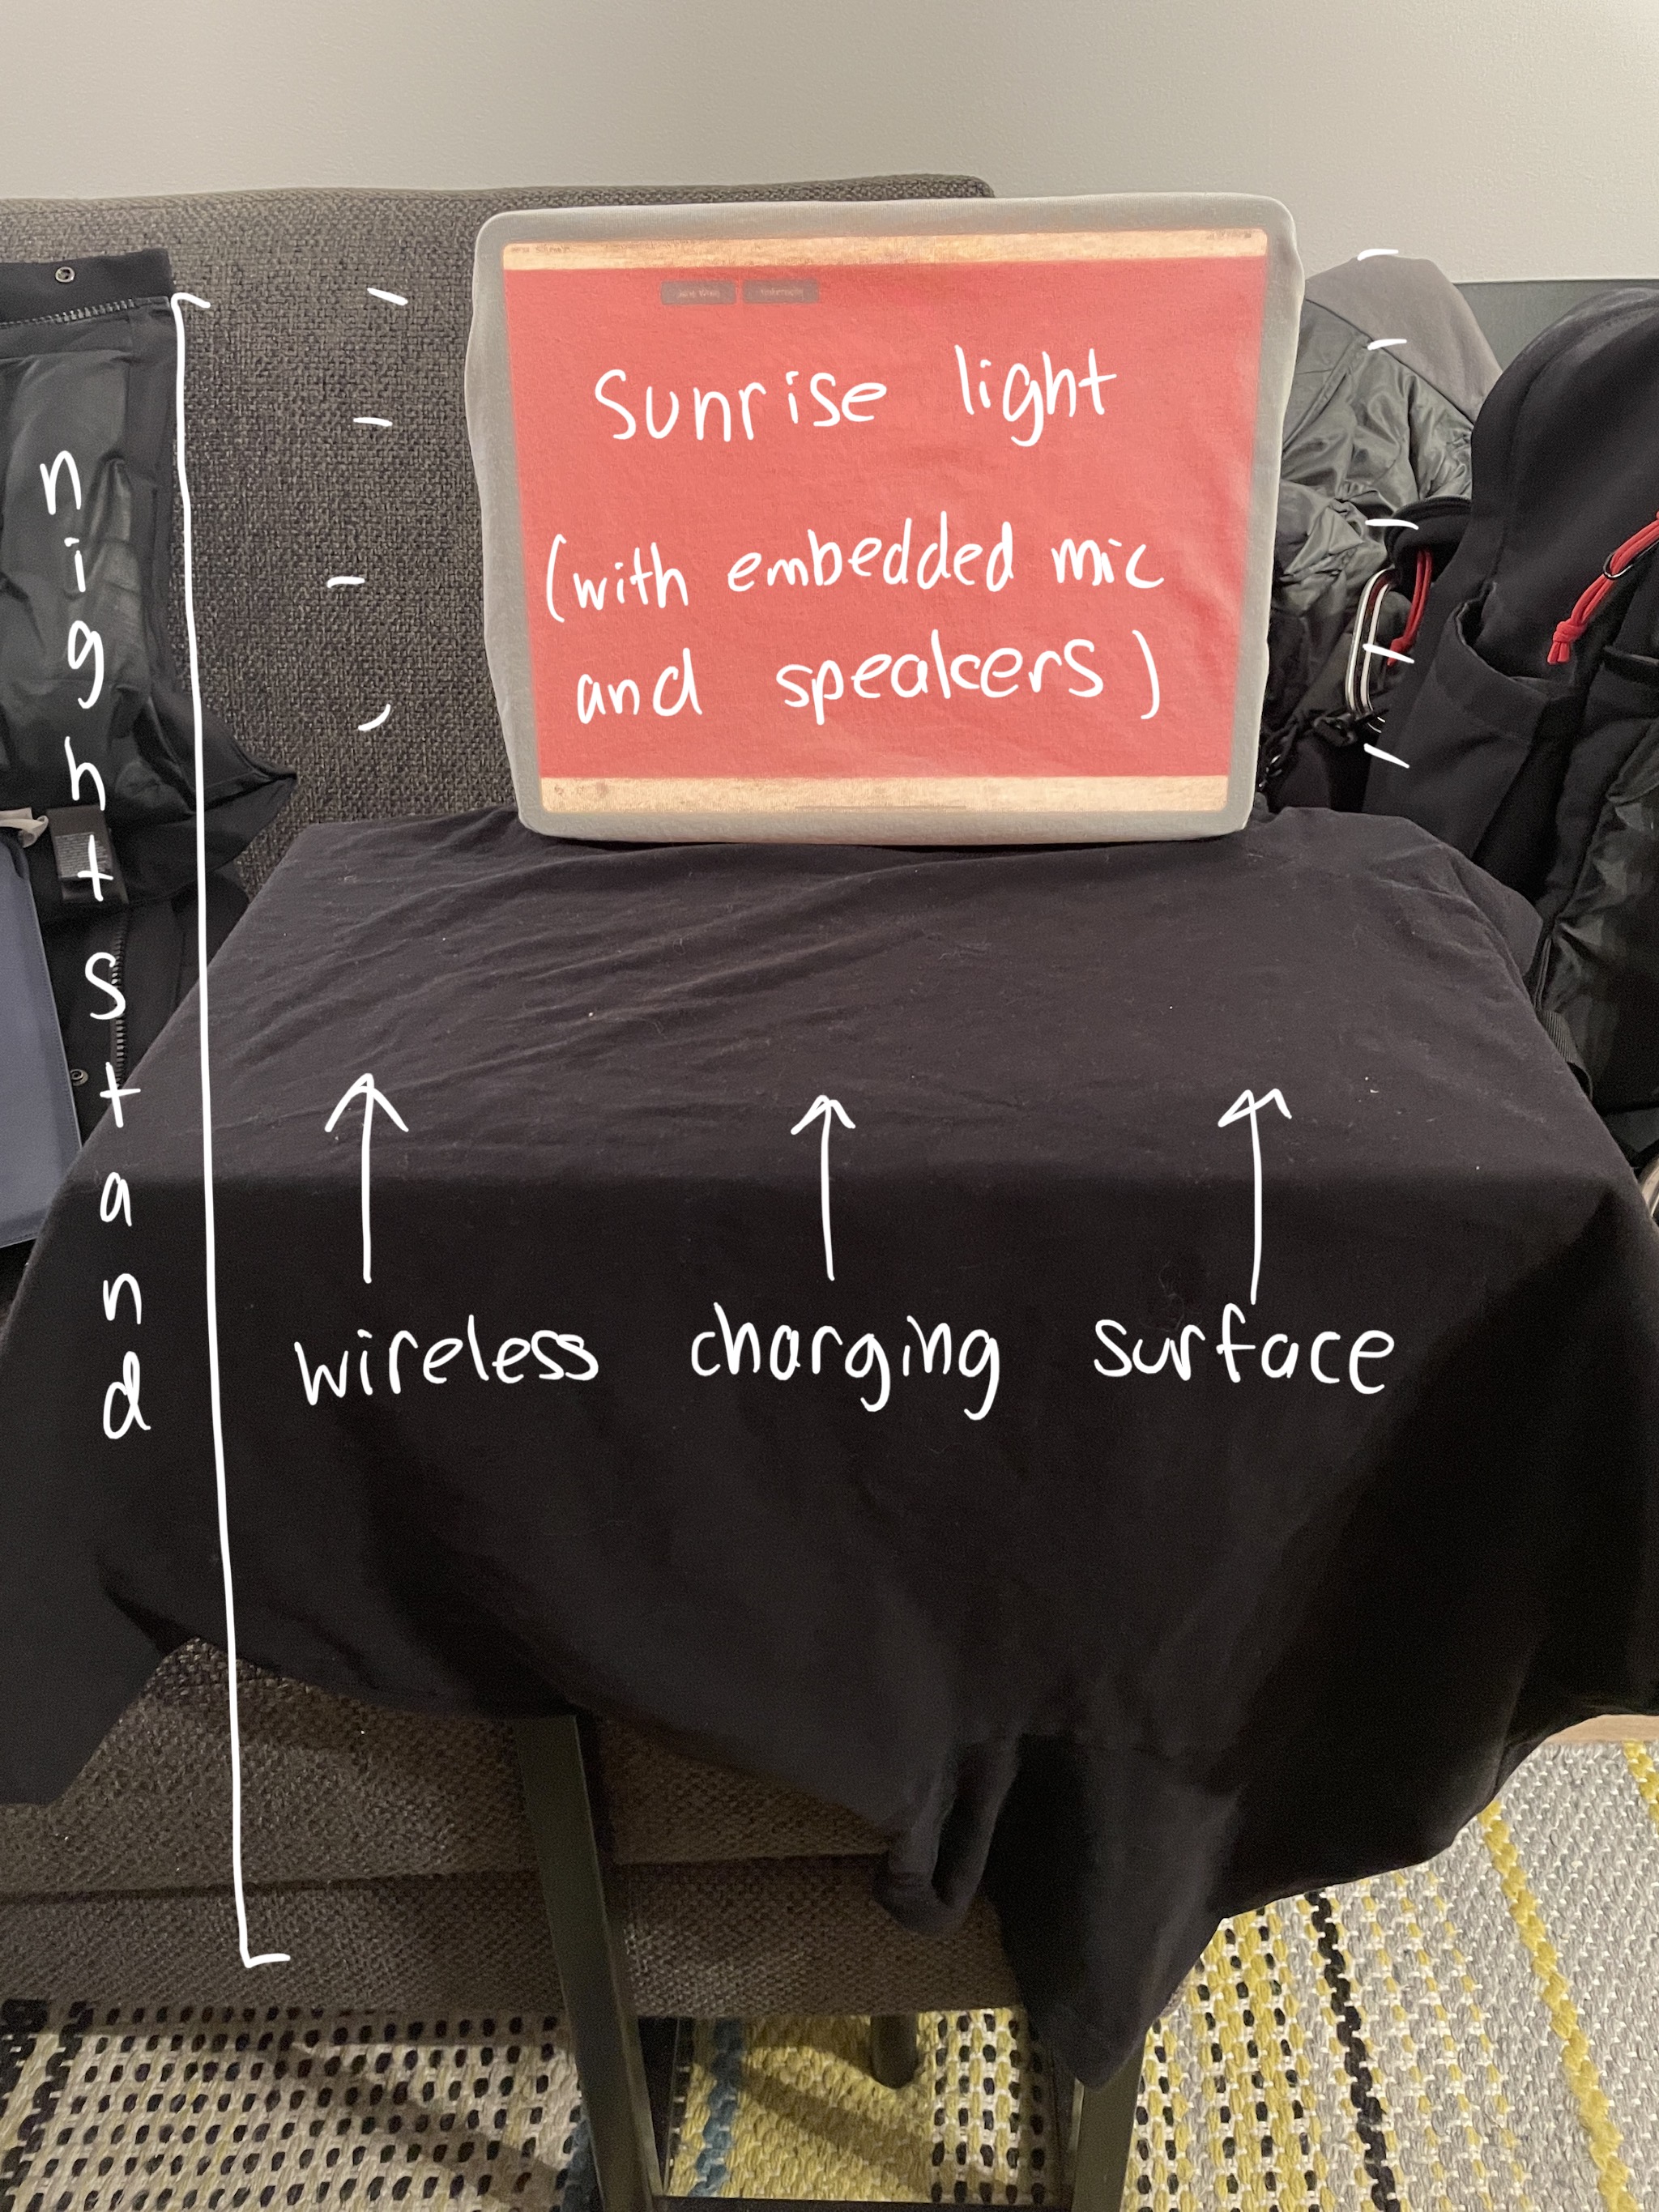 Sunrise light
(with embedded mic
and speakers)
nightstand
wireless charging surface